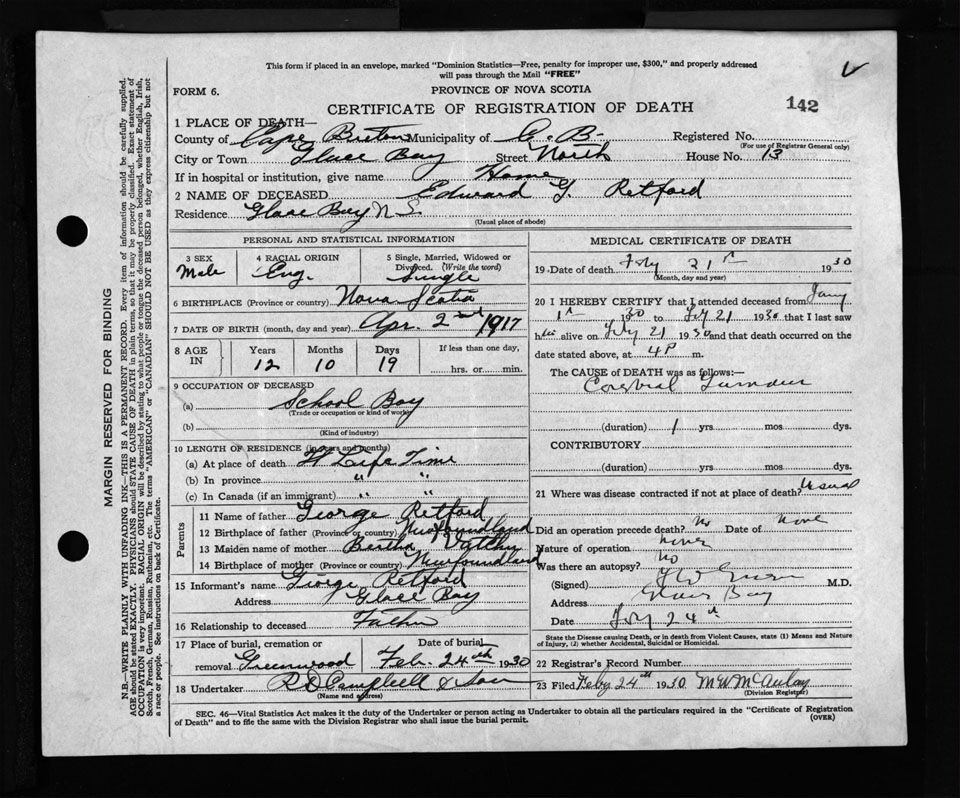 This form if placed in an envelope, marked "Dominion Statistics—Free, penalty for improper use, $300," and properly addressed
will pass through the Mail "FREE"
FORM 6.
PROVINCE OF NOVA SCOTIA
CERTIFICATE OF REGISTRATION OF DEATH
142
1 PLACE OF DEATH—
County of Cape Breton Municipality of C. B. Registered No.
(For use of Registrar General only)
City or Town Glace Bay Street North House No. 13
If in hospital or institution, give name Home
2 NAME OF DECEASED Edward G. Retford
Residence Glace Bay N.S.
(Usual place of abode)
PERSONAL AND STATISTICAL INFORMATION
3 SEX 4 RACIAL ORIGIN 5 Single, Married, Widowed or
Divorced. (Write the word)
Male Eng. Single
6 BIRTHPLACE (Province or country) Nova Scotia
7 DATE OF BIRTH (month, day and year) Apr. 2nd 1917
8 AGE IN Years Months Days If less than one day,
12 10 19 hrs. or min.
9 OCCUPATION OF DECEASED
(a) School Boy
(Trade or occupation or kind of work)
(b)
(Kind of industry)
10 LENGTH OF RESIDENCE (in years and months)
(a) At place of death A Life Time
(b) In province " "
(c) In Canada (if an immigrant) " "
Parents
11 Name of father George Retford
12 Birthplace of father (Province or country) Newfoundland
13 Maiden name of mother Bertha
14 Birthplace of mother (Province or country) Newfoundland
15 Informant's name George Retford
Address Glace Bay
16 Relationship to deceased Father
17 Place of burial, cremation or Date of burial
removal Greenwood Feb. 24th 1930
18 Undertaker R D Campbell & Son
(Name and address)
MEDICAL CERTIFICATE OF DEATH
19 Date of death Feby 21st 1930
(Month, day and year)
20 I HEREBY CERTIFY that I attended deceased from Jany
1st 1930 to Feby 21 1930 that I last saw
him alive on Feby 21 1930 and that death occurred on the
date stated above, at 4P m.
The CAUSE of DEATH was as follows:—
Cerebral Tumour
(duration) 1 yrs. mos. dys.
CONTRIBUTORY
(duration) yrs. mos. dys.
21 Where was disease contracted if not at place of death? Usual
Did an operation precede death? No Date of None
Nature of operation
Was there an autopsy? No
(Signed) M.D.
Address Glace Bay
Date Feby 24th
State the Disease causing Death, or in death from Violent Causes, state (1) Means and Nature
of Injury, (2) whether Accidental, Suicidal or Homicidal.
22 Registrar's Record Number
23 Filed Feby 24th 1930 M W McAulay
(Division Registrar)
SEC. 46—Vital Statistics Act makes it the duty of the Undertaker or person acting as Undertaker to obtain all the particulars required in the "Certificate of Registration
of Death" and to file the same with the Division Registrar who shall issue the burial permit.
(OVER)
MARGIN RESERVED FOR BINDING
N.B.—WRITE PLAINLY WITH UNFADING INK—THIS IS A PERMANENT RECORD. Every item of information should be carefully supplied.
AGE should be stated EXACTLY. PHYSICIANS should STATE CAUSE OF DEATH in plain terms, so that it may be properly classified. Exact statement of
OCCUPATION is very important. RACIAL ORIGIN will be described by stating to what people or tongue the deceased person belonged, whether English, Irish,
Scotch, French, German, Russian, Ruthenian, etc. The terms "AMERICAN" or "CANADIAN" SHOULD NOT BE USED as they express citizenship but not
a race or people. See instructions on back of Certificate.